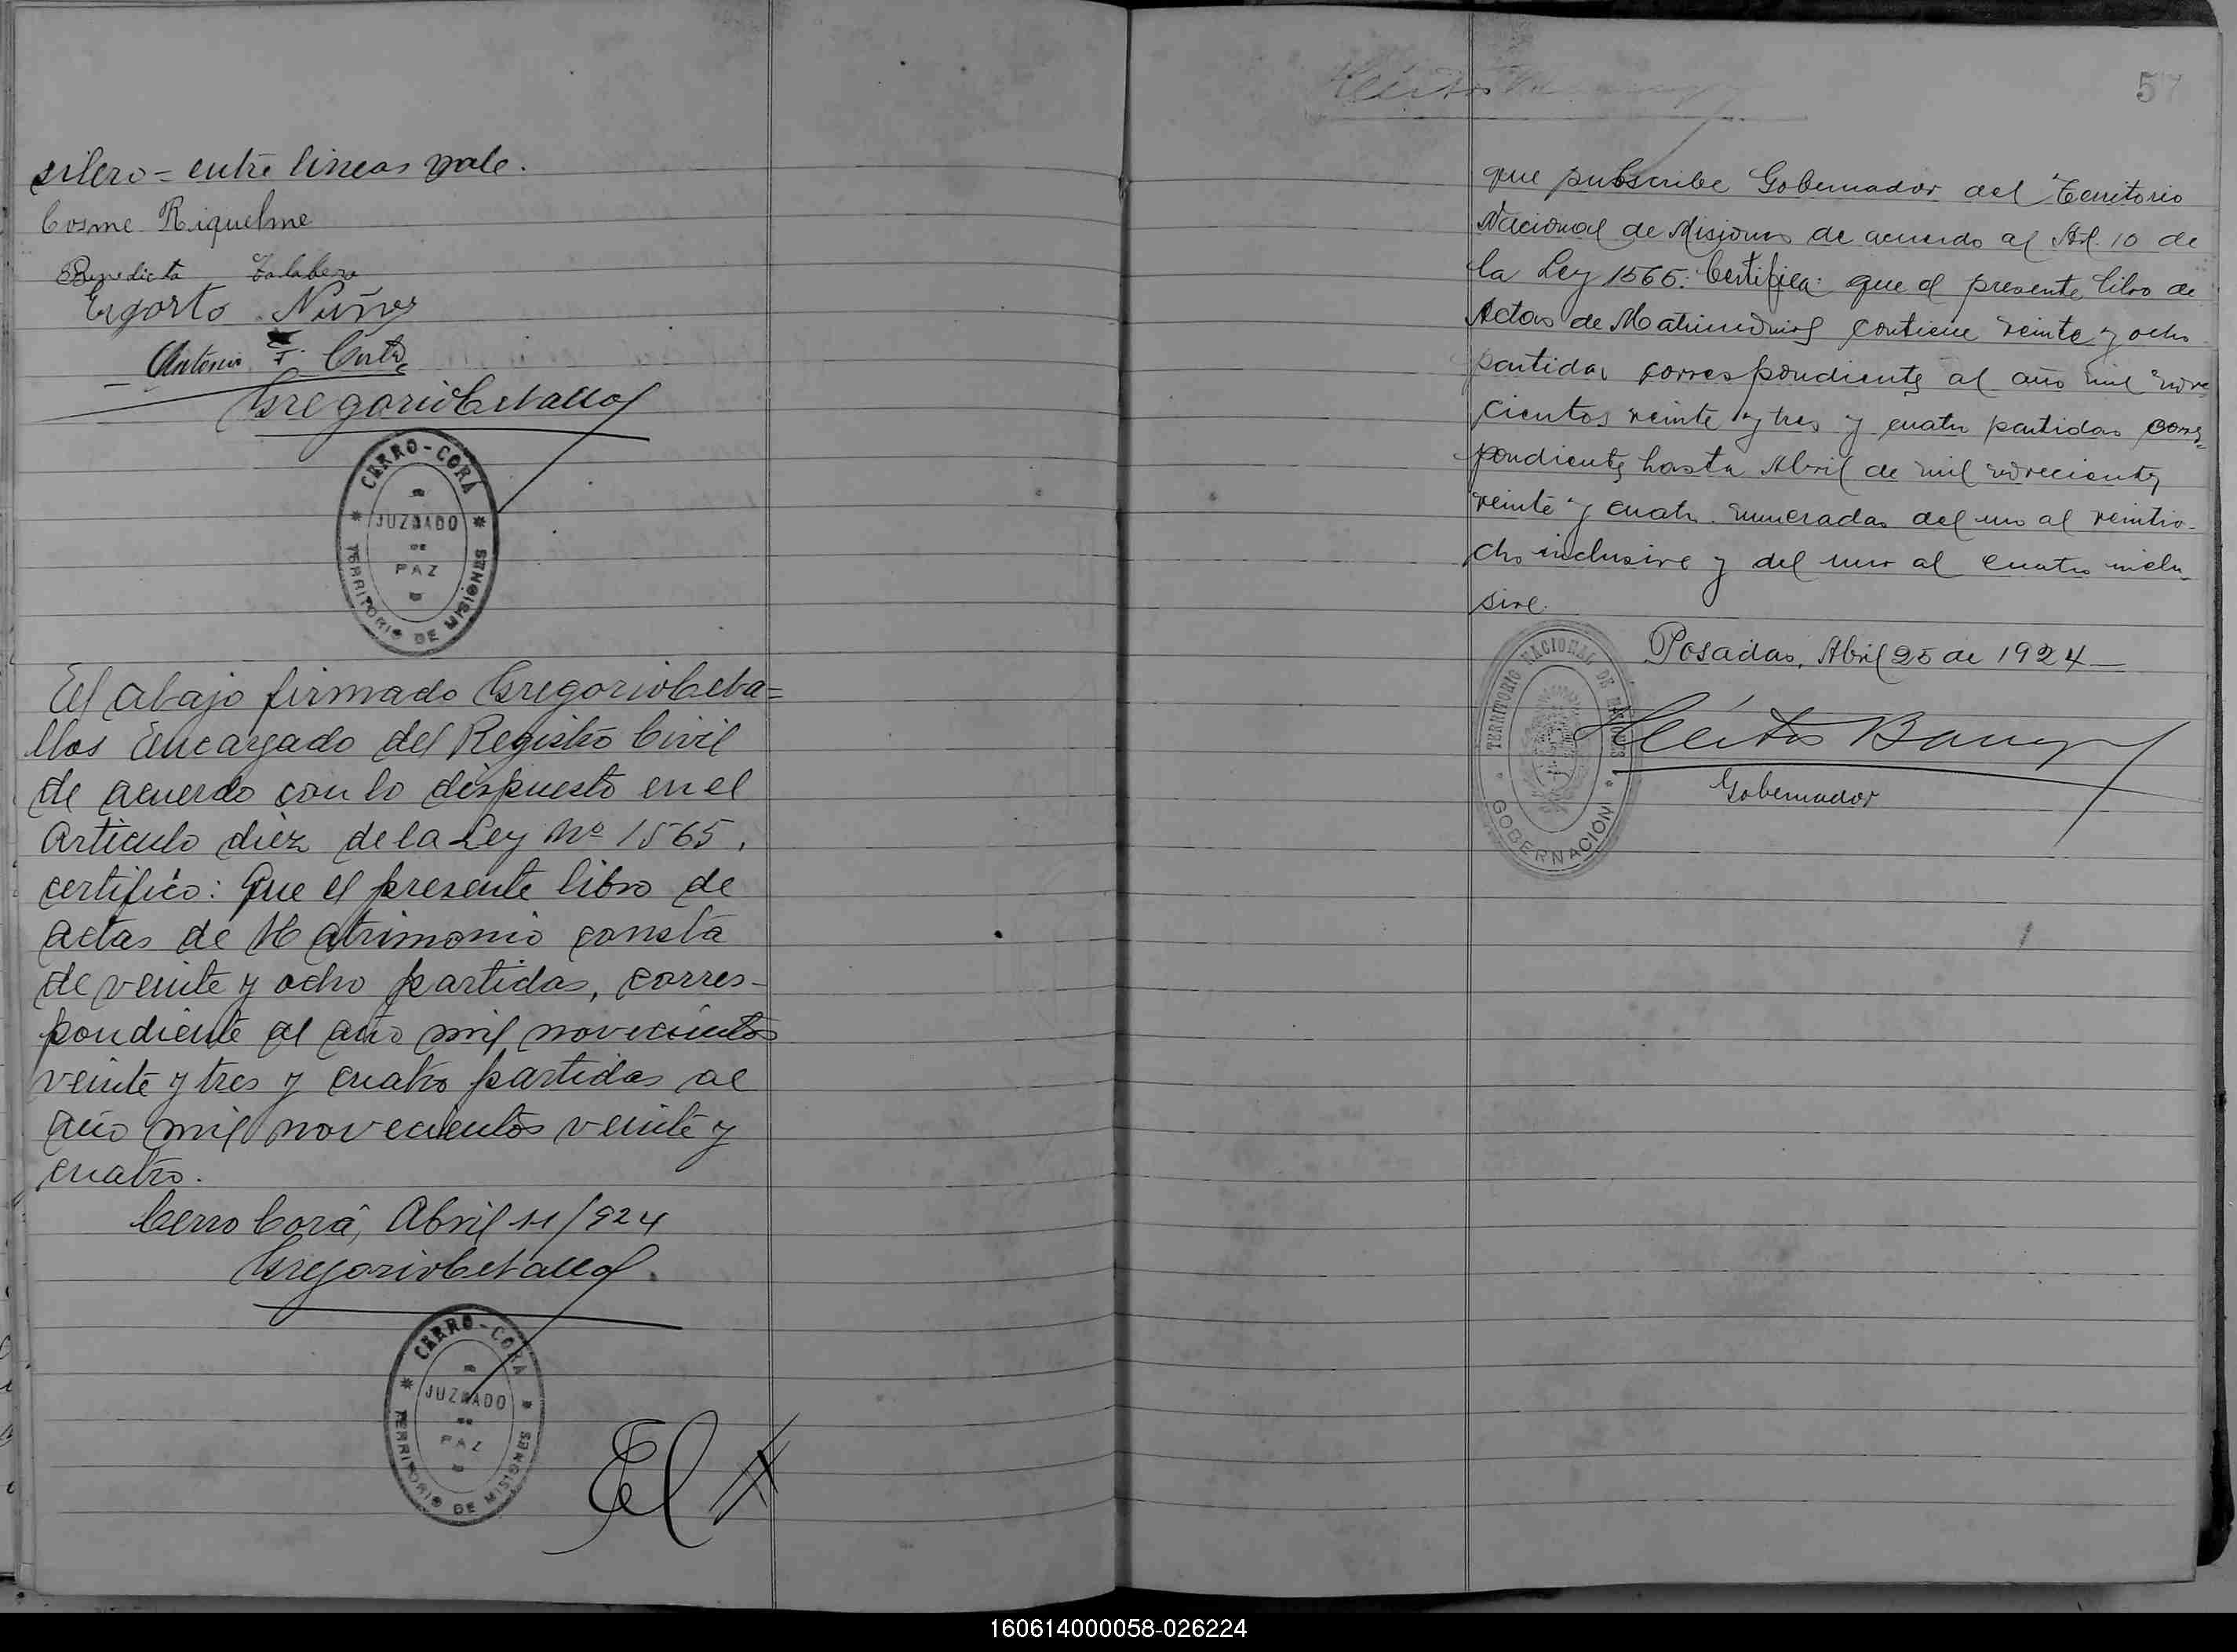 silero = entre lineas vale.
Cosme Riquelme
Benedicta Zalabero
Ergasto Nuñes
Antonio F.
Gregorio Ceballos
CERRO-CORÁ
JUZGADO
DE
PAZ
TERRITORIO DE MISIONES
El abajo firmado Gregorio Ceba=
llos Encargado del Registro Civil
de acuerdo con lo dispuesto en el
Articulo diez de la Ley Nº 1565,
certifico: Que el presente libro de
actas de Matrimonio consta
de veinte y ocho partidas, corres-
pondiente al año mil novecientos
veinte y tres y cuatro partidas al
año mil novecientos veinte y
cuatro.
Cerro Corá, Abril 11/924
Gregorio Ceballos
CERRO-CORÁ
JUZGADO
DE
PAZ
TERRITORIO DE MISIONES
El
57
que subscribe Gobernador del Territorio
Nacional de Misiones de acuerdo al Art. 10 de
la Ley 1565: Certifica: que el presente libro de
Actas de Matrimonios contiene veinte y ocho
partidas correspondientes al año mil nove
cientos veinte y tres y cuatro partidas corres=
pondientes hasta Abril de mil novecientos
veinte y cuatro numeradas del uno al veintio-
cho inclusive y del uno al cuatro inclu-
sive.
Posadas, Abril 25 de 1924
Héctor Barreyro
Gobernador
TERRITORIO NACIONAL DE MISIONES
GOBERNACIÓN
160614000058-026224